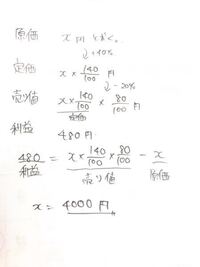 原価 x円 とおく。
↓+40%
定価 x × 140/100 円
↓-20%
売り値 x × 140/100 × 80/100 円
定価
利益 480円
480 = x × 140/100 × 80/100 - x
利益 売り値 原価
x = 4000円